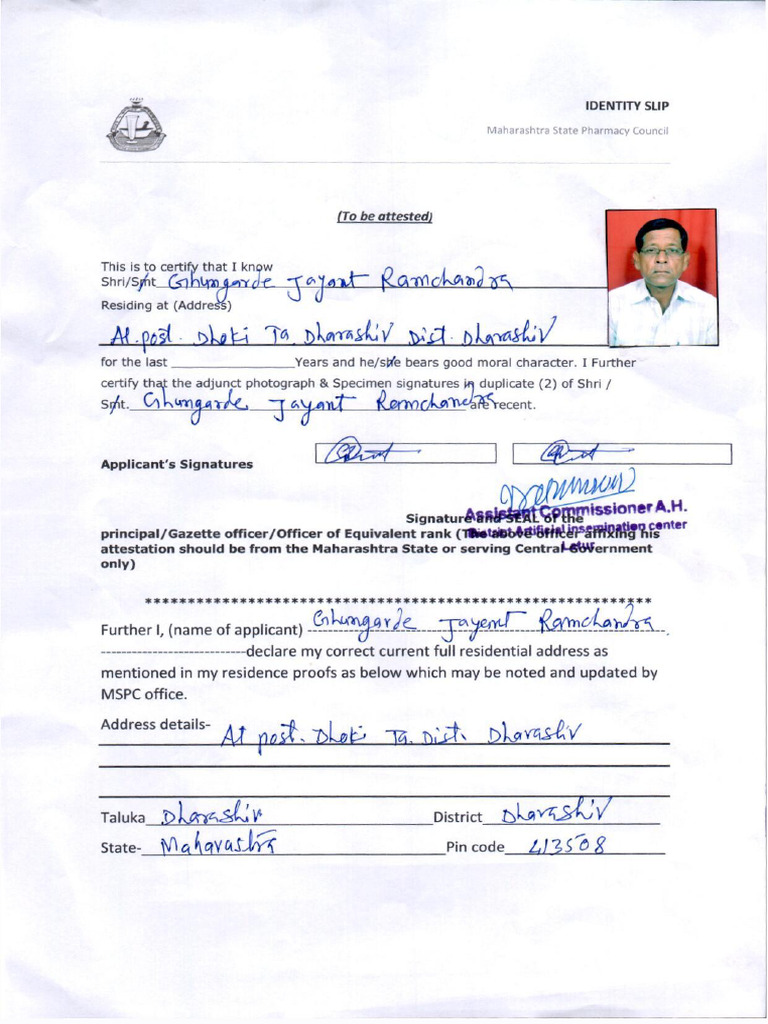 IDENTITY SLIP
Maharashtra State Pharmacy Council
(To be attested)
This is to certify that I know
Shri/Smt Ghungarde Jayant Ramchandra
Residing at (Address)
At. post. Dhoki Ta. Dharashiv Dist. Dharashiv
for the last ____________________Years and he/she bears good moral character. I Further
certify that the adjunct photograph & Specimen signatures in duplicate (2) of Shri /
Smt. Ghungarde Jayant Ramchandra are recent.
Applicant's Signatures
Assistant Commissioner A.H.
Signature and SEAL of the
District Artificial insemination center
principal/Gazette officer/Officer of Equivalent rank (The above officer affixing his
Latur
attestation should be from the Maharashtra State or serving Central Government
only)
******************************************************************
Further I, (name of applicant) Ghungarde Jayant Ramchandra
----------------------------declare my correct current full residential address as
mentioned in my residence proofs as below which may be noted and updated by
MSPC office.
Address details- At post. Dhoki Ta. Dist. Dharashiv
Taluka Dharashiv District Dharashiv
State- Maharastra Pin code 413508